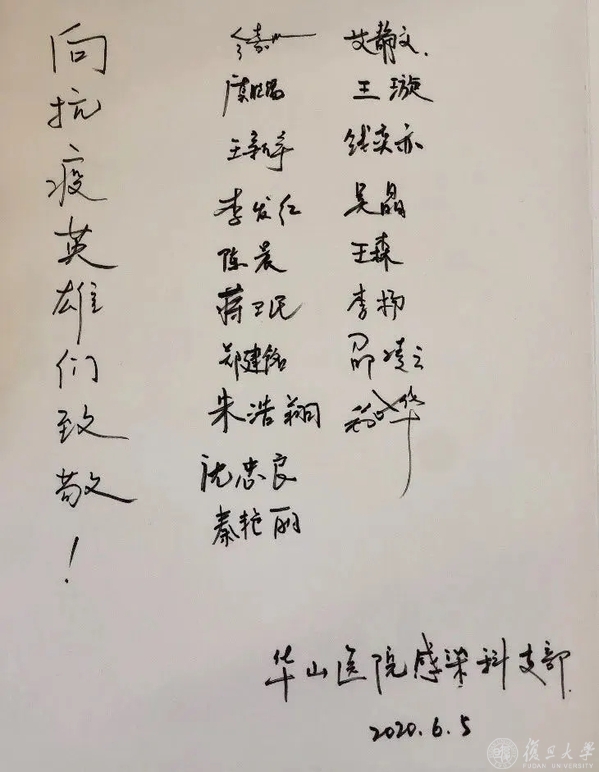 向抗疫英雄们致敬！
王新宇
李发红
陈晨
蒋卫民
郑建铭
朱浩翔
沈忠良
秦艳丽
艾静文
王璇
钱奕亦
吴晶
王森
李杨
邵凌云
华山医院感染科支部
2020.6.5
復旦大學
FUDAN UNIVERSITY